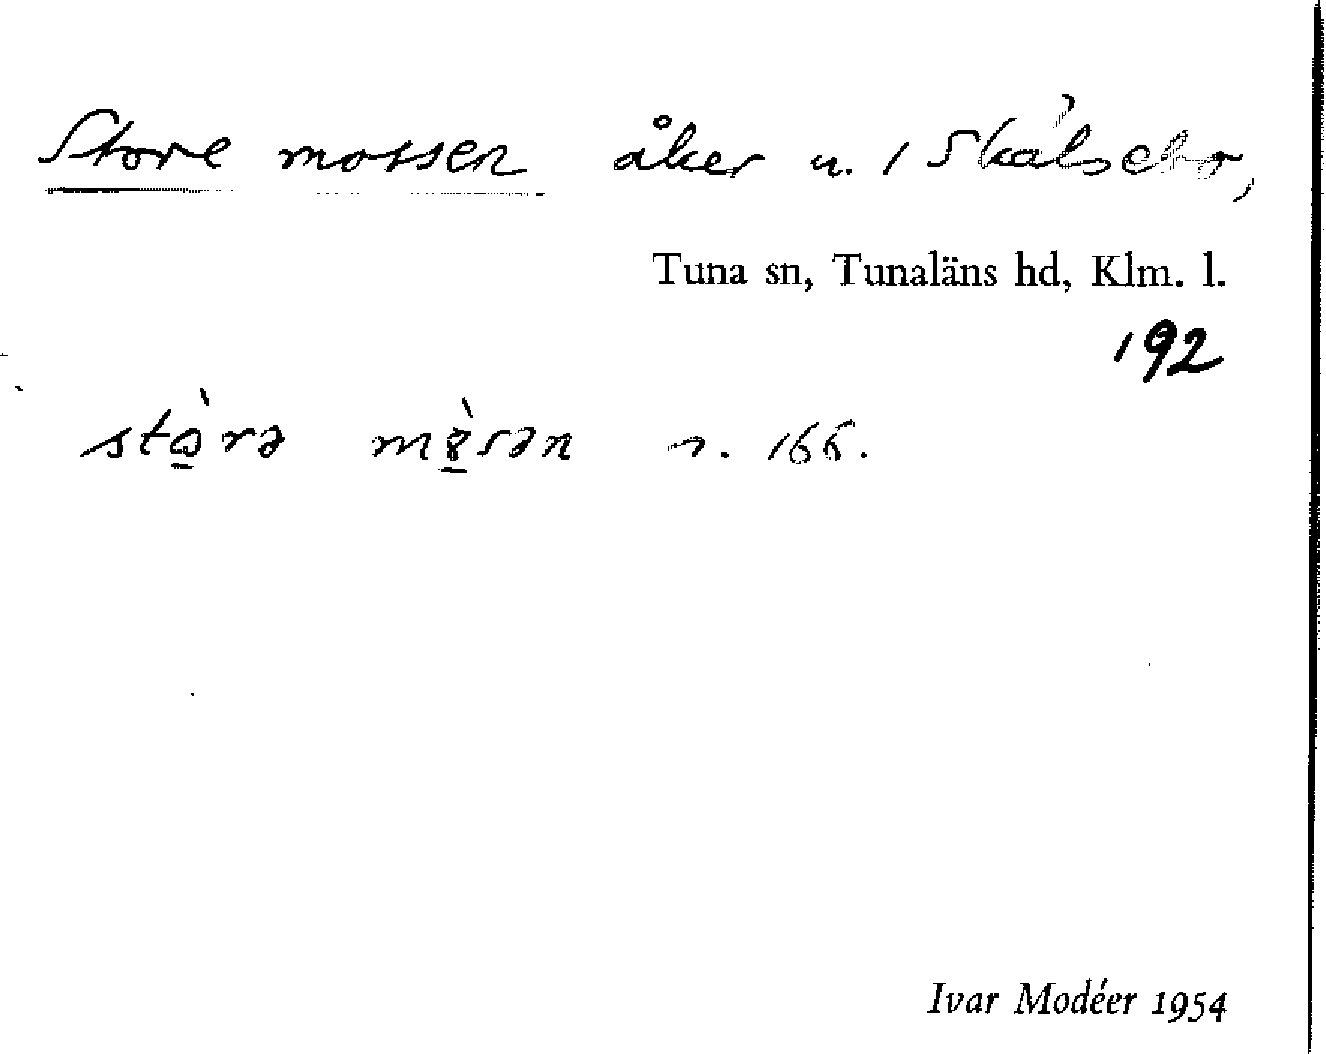 Store mossen åker u. 1 Skålsebo,
Tuna sn, Tunaläns hd, Klm. l.
192
n. 166.
Ivar Modéer 1954